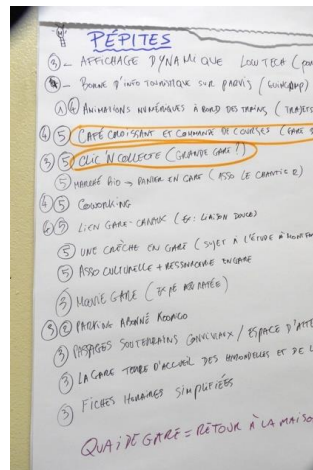 PÉPITES
③ - AFFICHAGE DYNAMIQUE LOW TECH (
④ - BORNE D'INFO TOURISTIQUE SUR PARVIS (GUINGAMP)
④ ANIMATIONS NUMÉRIQUES À BORD DES TRAINS (TRAJETS
④ ⑤ CAFÉ CROISSANT ET COMMANDE DE COURSES (GARE
③ ⑤ CLIC 'N COLLECTE (GRANDE GARE!)
⑤ MARCHÉ BIO → PANIER EN GARE (ASSO LE CHANTIER)
④ ⑤ COWORKING
⑥ ⑤ LIEN GARE-CANAUX (EX: LIAISON DOUCE)
⑤ UNE CRÈCHE EN GARE (SUJET À L'ÉTUDE À
⑤ ASSO CULTURELLE + RESSOURCERIE EN GARE
③ MOOVIE GARE (
③ ② PARKING ABONNÉ KORRIGO
③ PASSAGES SOUTERRAINS CONVIVIAUX / ESPACE D'ATTE
③ LA GARE TERRE D'ACCUEIL DES HIRONDELLES ET DE L
③ FICHES HORAIRES SIMPLIFIÉES
QUAI DE GARE = RETOUR À LA MAISO